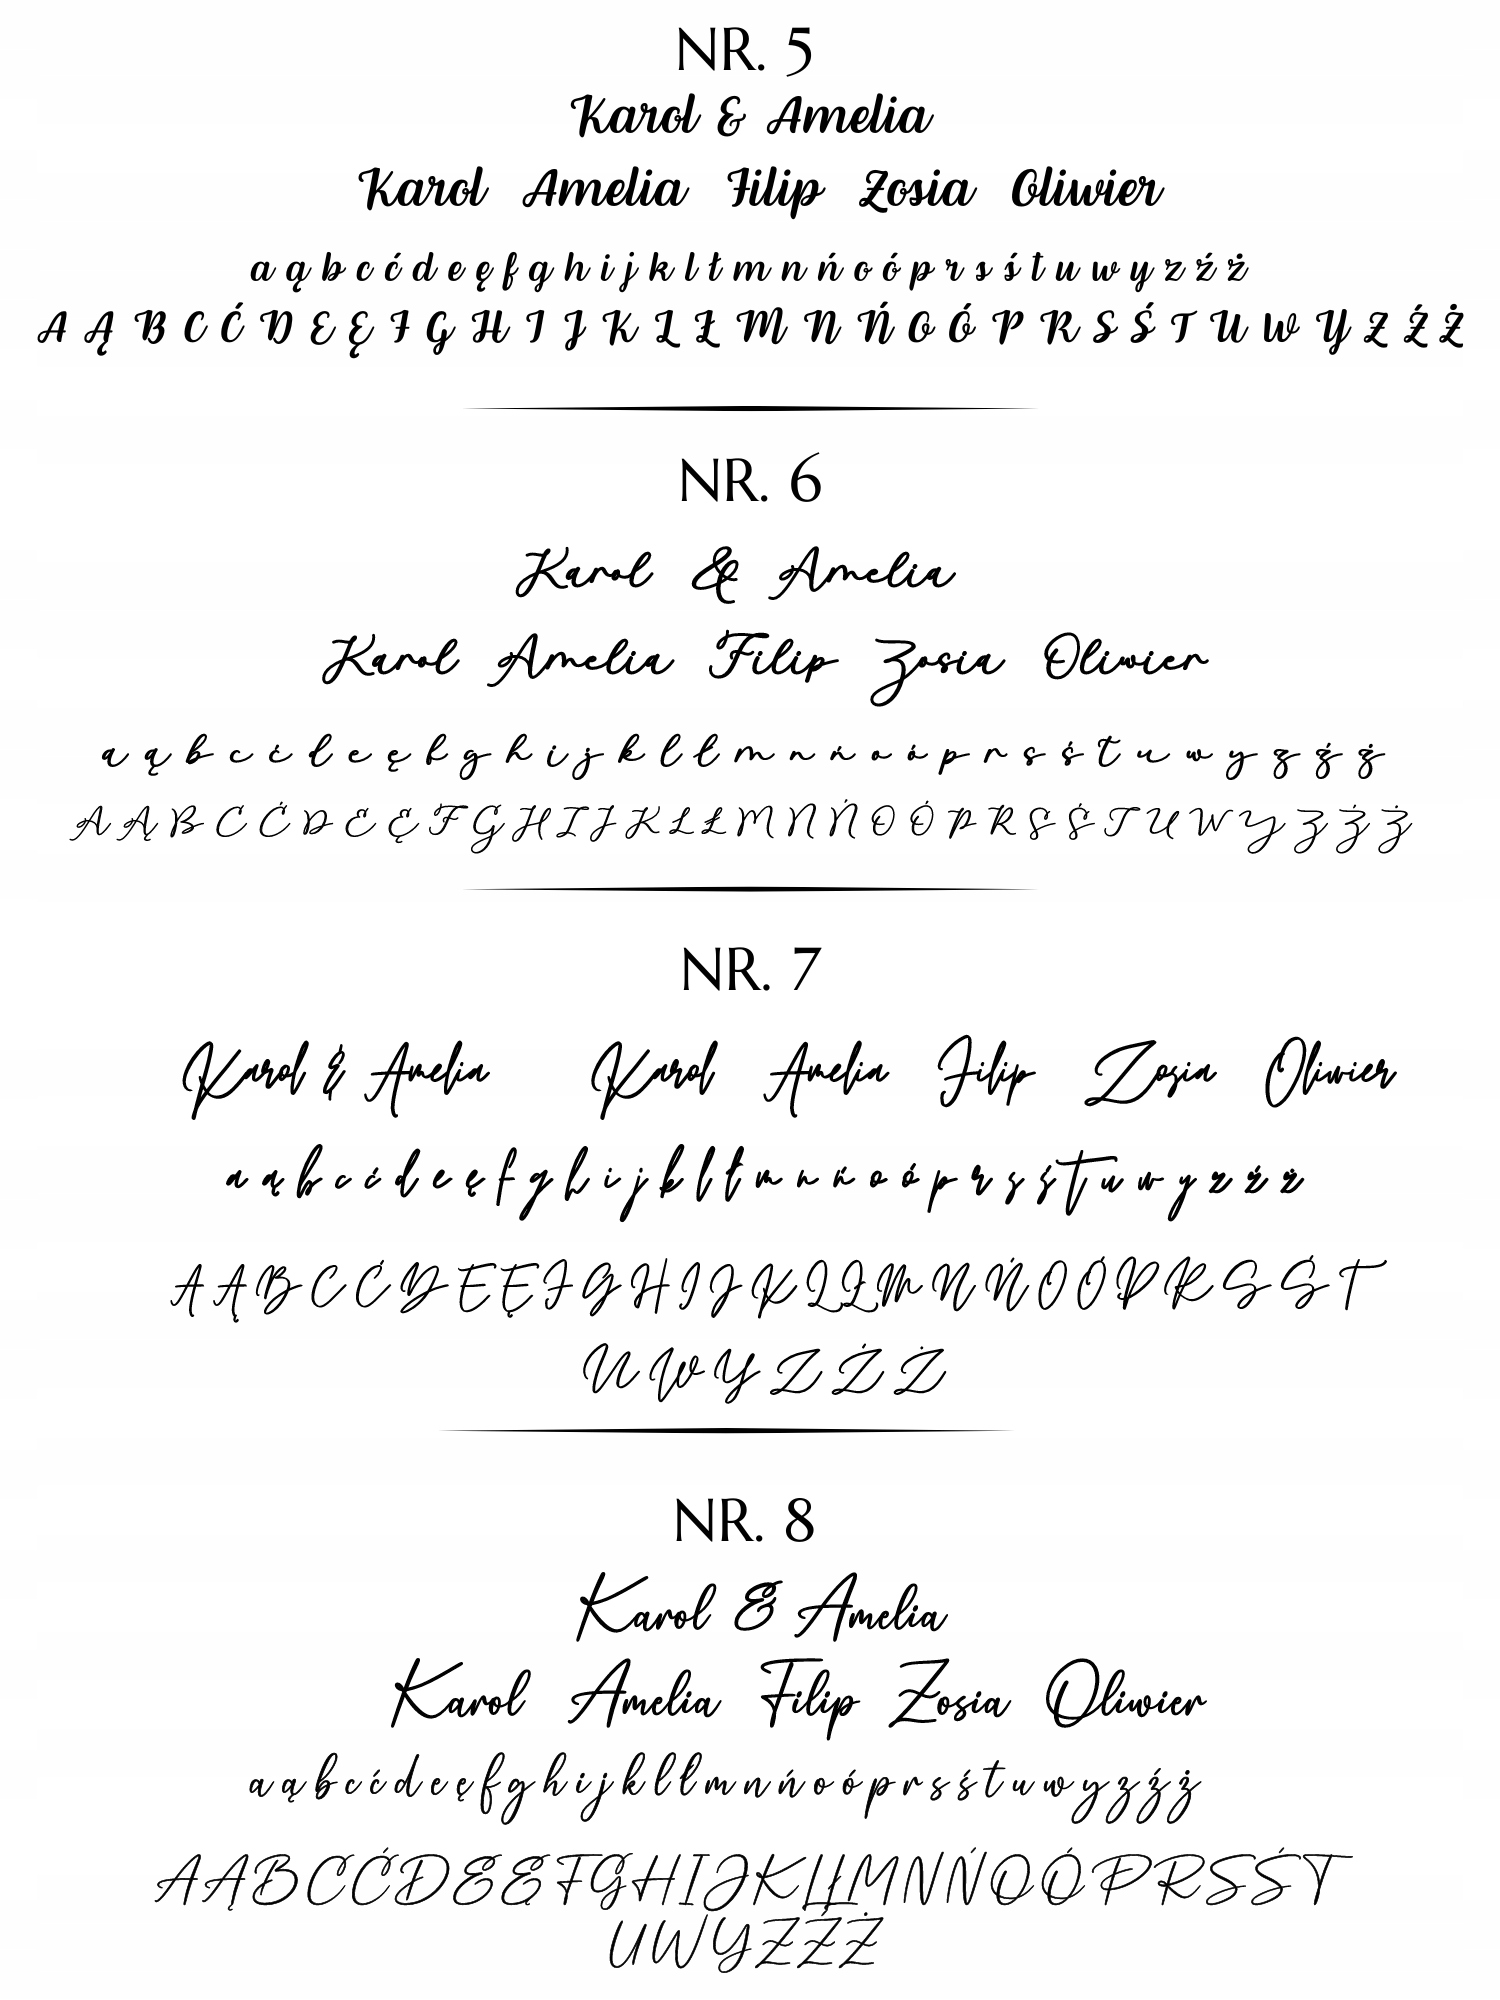 NR. 5
Karol & Amelia
Karol Amelia Filip Zosia Oliwier
a ą b c ć d e ę f g h i j k l ł m n ń o ó p r s ś t u w y z ź ż
A Ą B C Ć D E Ę F G H I J K L Ł M N Ń O Ó P R S Ś T U W Y Z Ź Ż
NR. 6
Karol & Amelia
Karol Amelia Filip Zosia Oliwier
a ą b c ć d e ę f g h i j k l ł m n ń o ó p r s ś t u w y z ź ż
A Ą B C Ć D E Ę F G H I J K L Ł M N Ń O Ó P R S Ś T U W Y Z Ź Ż
NR. 7
Karol & Amelia Karol Amelia Filip Zosia Oliwier
a ą b c ć d e ę f g h i j k l ł m n ń o ó p r s ś t u w y z ź ż
A Ą B C Ć D E Ę F G H I J K L Ł M N Ń O Ó P R S Ś T
U W Y Z Ź Ż
NR. 8
Karol & Amelia
Karol Amelia Filip Zosia Oliwier
a ą b c ć d e ę f g h i j k l ł m n ń o ó p r s ś t u w y z ź ż
A Ą B C Ć D E Ę F G H I J K L Ł M N Ń O Ó P R S Ś T
U W Y Z Ź Ż